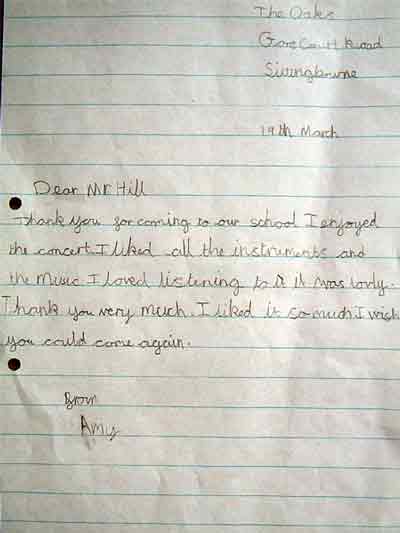 The Oaks
Gore Court Road
Sittingbourne
19th March
Dear Mr Hill
Thank you for coming to our school I enjoyed
the concert. I liked all the instruments and
the music I loved listening to it it was lovly.
Thank you very much. I liked it so much I wish
you could come again.
From
Amy